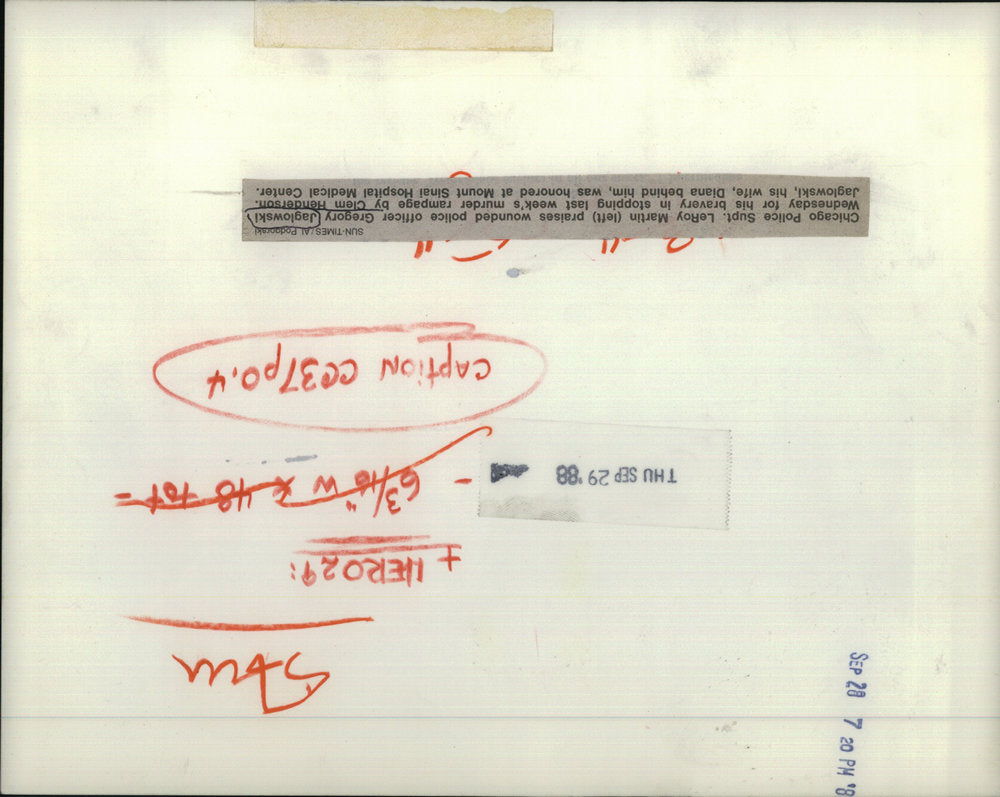 Stan
+ HERO29:
- 6 3/16" W x 48 Tot =
THU SEP 29 '88
CAPTION CC37p0.4
SUN-TIMES/Al Podgorski
Chicago Police Supt. LeRoy Martin (left) praises wounded police officer Gregory Jaglowski
Wednesday for his bravery in stopping last week's murder rampage by Clem Henderson.
Jaglowski, his wife, Diana behind him, was honored at Mount Sinai Hospital Medical Center.
SEP 28 7 20 PM '8